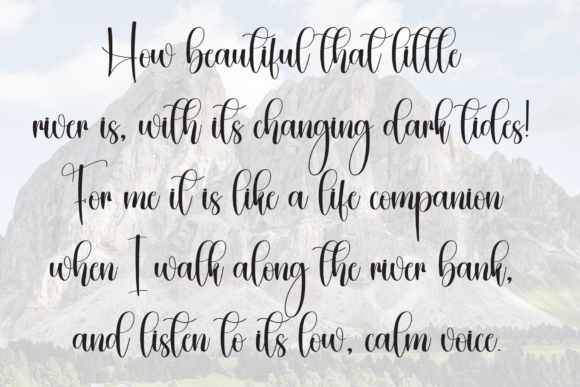 How beautiful that little
river is, with its changing dark tides!
For me it is like a life companion
when I walk along the river bank,
and listen to its low, calm voice.